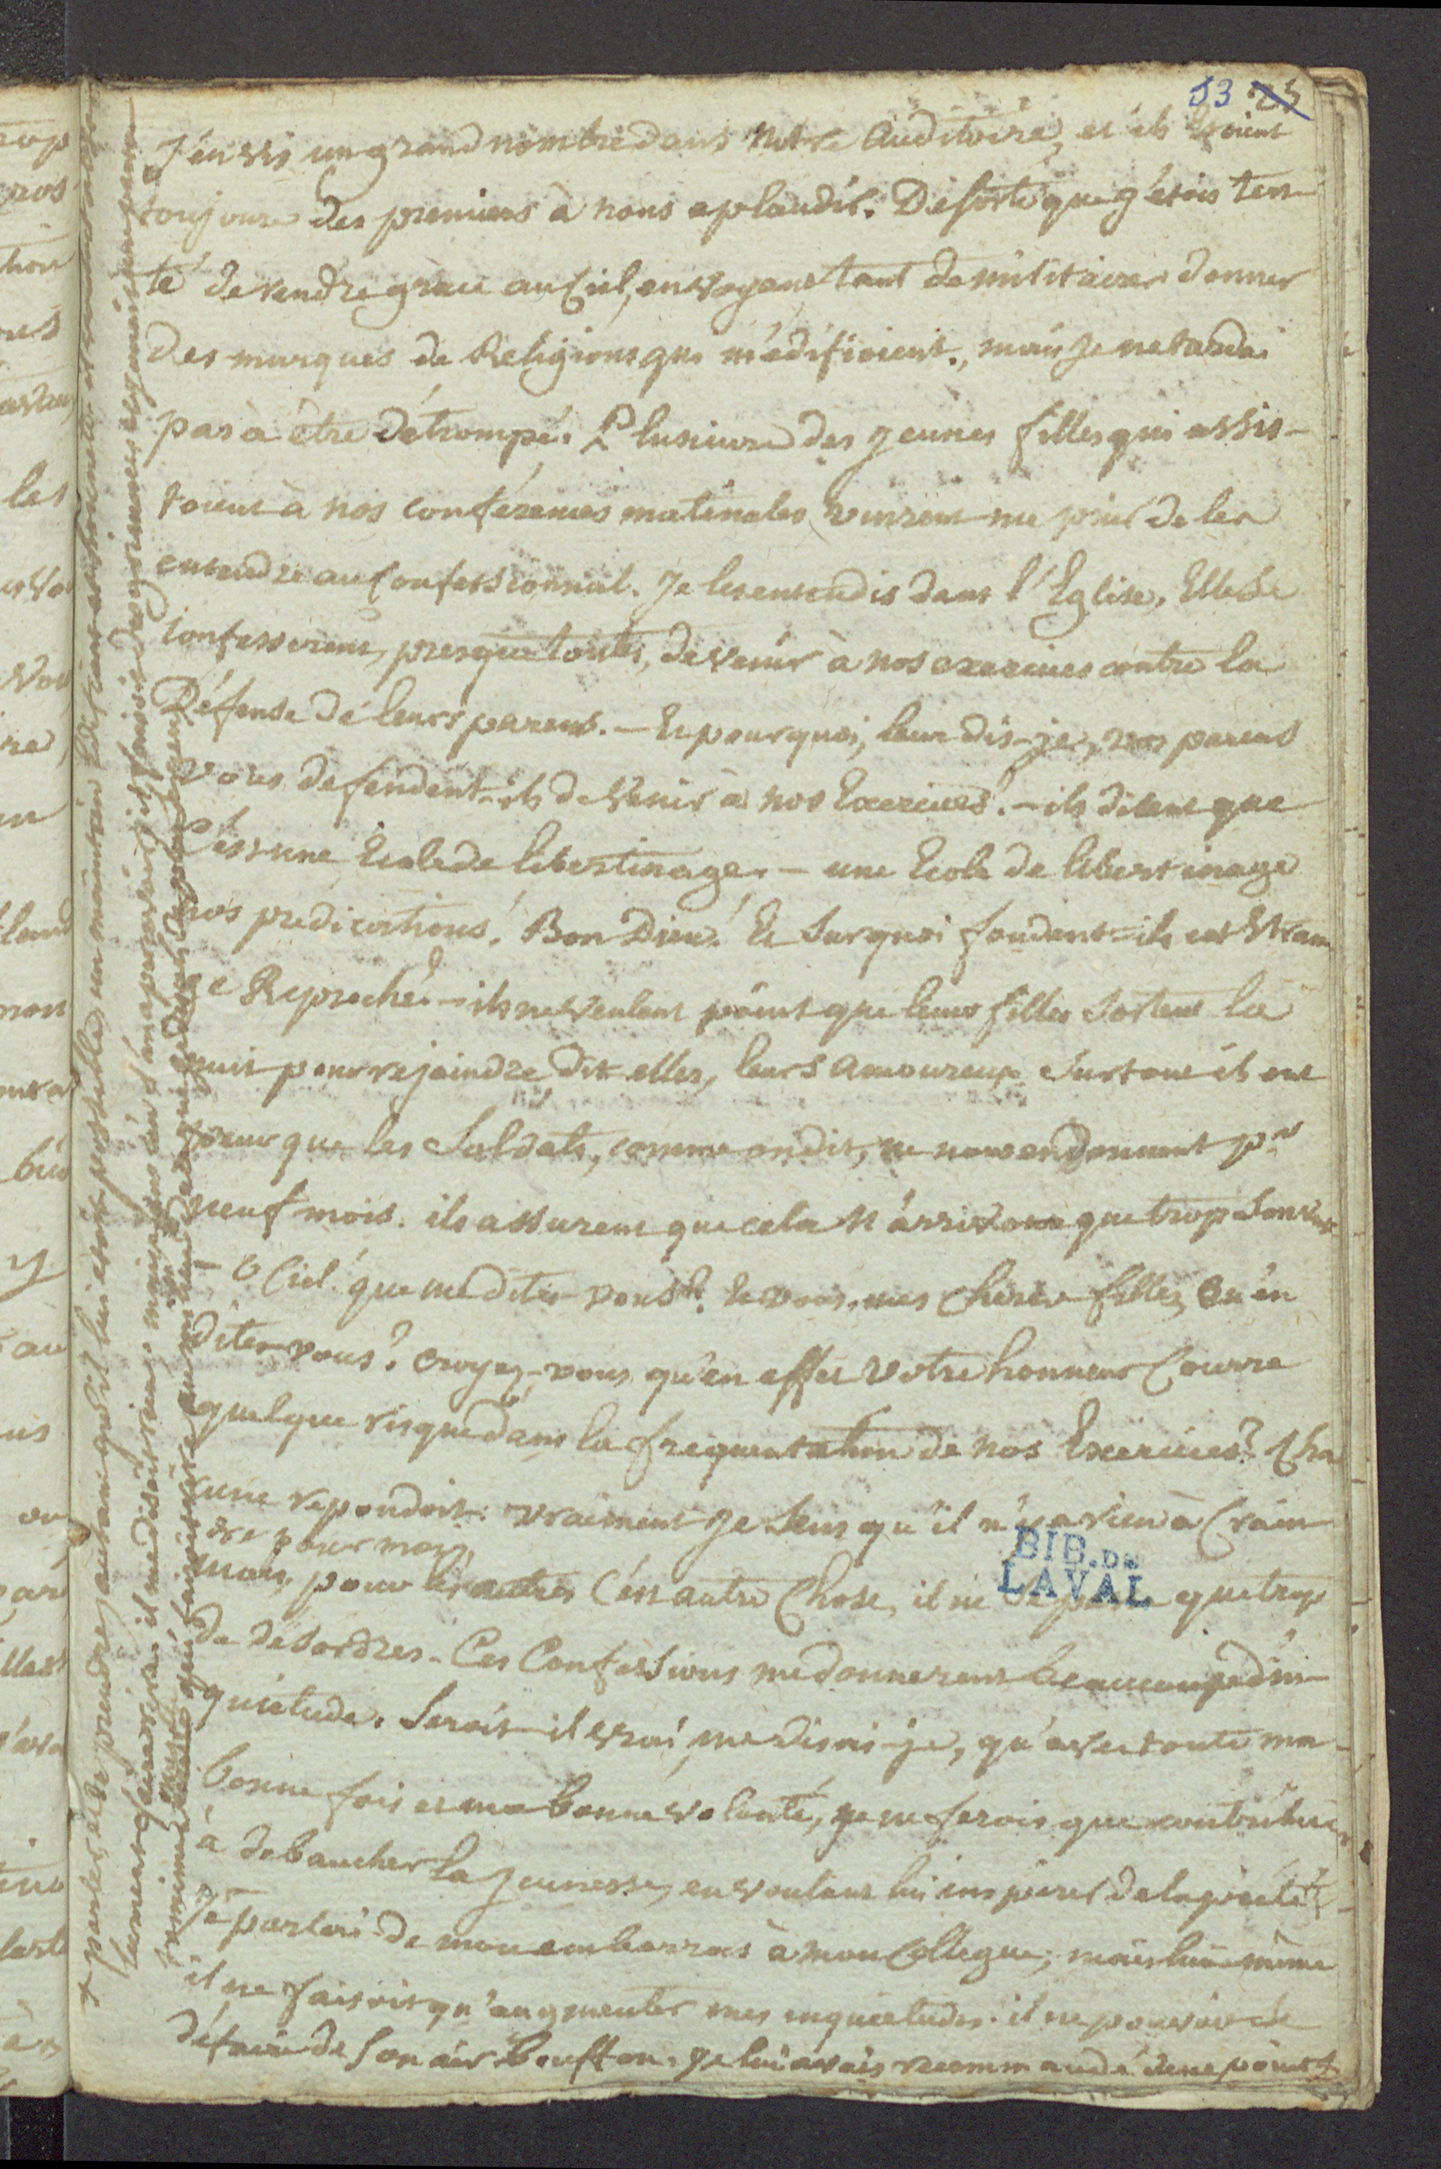 53 25
J'en vis un grand nombre dans notre Auditoire, et ils étoient
toujours des premiers à nous aplaudir. De sorte que j'étois ten-
té de rendre grace au Ciel, en voyant tant de militaires donner
des marques de Religions qui m'édifioient, mais je ne tardai
pas à être détrompé. Plusieurs des jeunes filles qui assis-
toient à nos conférences matinales, vinrent me prier de les
entendre au Confessionnal. Je les entendis dans l'Eglise. Elles se
confesserent, presque toutes, de venir à nos exercices contre la
Défense de leurs parens. — Et pourquoi, leur dis-je, vos parens
vous defendent-ils de venir à nos Exercices? — ils disent que
C'est une Ecole de libertinage. — une Ecole de libertinage
nos predications! Bon Dieu! Et sur quoi fondent-ils cet étran
ge Reproche? — ils ne veulent point que leurs filles sortent la
nuit pour rejoindre dit elles, leurs amoureux surtout ils ont
peur que les Soldats, comme on dit, ne nous en donnent pr
neuf mois. ils assurent que cela n'arrive que trop souvent
— O Ciel! que me dites-vous là! Et vous, mes cheres filles, qu'en
dites-vous? croyez-vous qu'en effet votre honneur Courre
quelque risque dans la frequentation de nos Exercices? Cha
cune repondoit: vraiment je sens qu'il n'y a rien à Crain
dre pour moi;
mais, pour les autres C'est autre Chose, il ne se passe que trop
de désordres. Ces Confessions me donnerent beaucoup d'in-
quietude. Seroit-il vrai, me disois-je, qu'avec toute ma
bonne fois et ma bonne volonté, je ne ferois que contribuer
à debaucher la jeunesse, en voulant lui inspirer de la pieté?
Je parlai de mon embarras à mon Collegue; mais lui-même
il ne faisoit qu'augmenter mes inquietudes. il ne pouvoit se
défaire de son air bouffon. Je lui avais recommandé de ne point +
BIB. DE
LAVAL
+ parler, et de prendre, autant qu'il lui étoit possible, un maintien